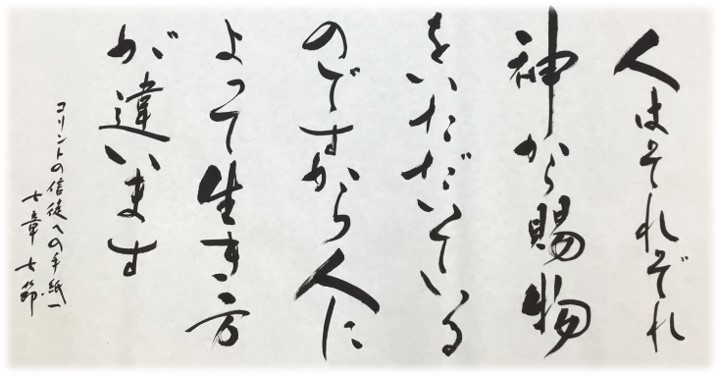 人はそれぞれ
神から賜物
をいただいている
のですから人に
よって生き方
が違います
コリントの信徒への手紙一
七章 七節